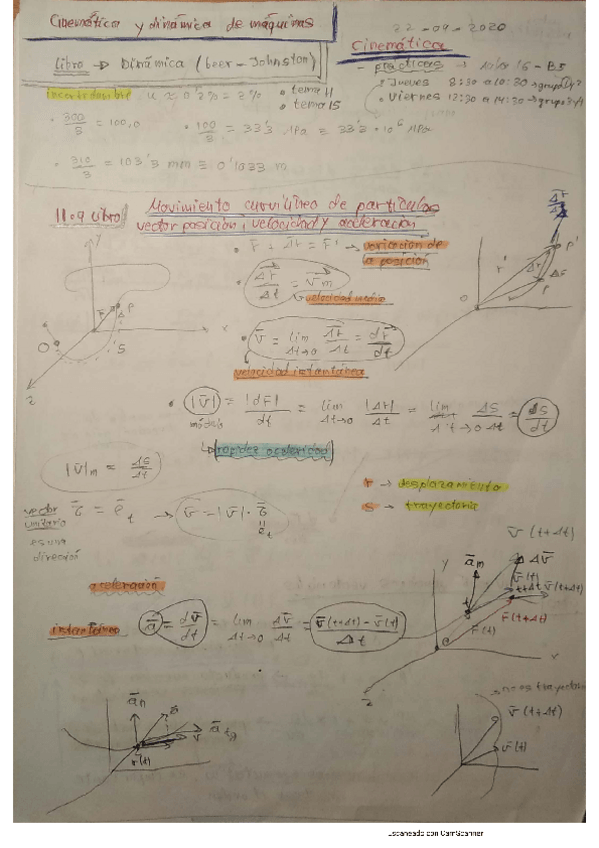 Cinemática y dinámica de máquinas
22-09-2020
Libro → Dinámica (Beer-Johnston)
Cinemática
- prácticas → 
Jueves 8:30 a 10:30 → grupo
Viernes 12:30 a 14:30 → grupo
Incertidumbre
• tema 11
• tema 15
• 300/3 = 100,0
• 100/3 = 33'3 MPa ≡ 33'3 · 10^6 Pa
• 310/3 = 103'3 mm ≡ 0'1033 m
11.9 Libro
Movimiento curvilíneo de partículas
vector posición, velocidad y aceleración
variación de
la posición
Δr/Δt = v̄m
velocidad media
v̄ = lim Δt→0 Δr/Δt = dr̄/dt
velocidad instantánea
• |v̄| = |dr̄|/dt = lim Δt→0 |Δr|/Δt = lim Δt→0 ΔS/Δt = dS/dt
módulo
rapidez o celeridad
|v̄|m = ΔS/Δt
r → desplazamiento
s → trayectoria
vector
unitario
es una
dirección
τ̄ = ēt → v̄ = |v̄| · τ̄
ēt
aceleración
instantánea
ā = dv̄/dt = lim Δt→0 Δv̄/Δt = (v̄(t+Δt) - v̄(t))/Δt
v̄(t+Δt)
Δv̄
ām
v̄(t)
v̄(t+Δt)
r̄(t+Δt)
r̄(t)
no es trayectoria
v̄(t+Δt)
v̄(t)
ān
r(t)
Escaneado con CamScanner